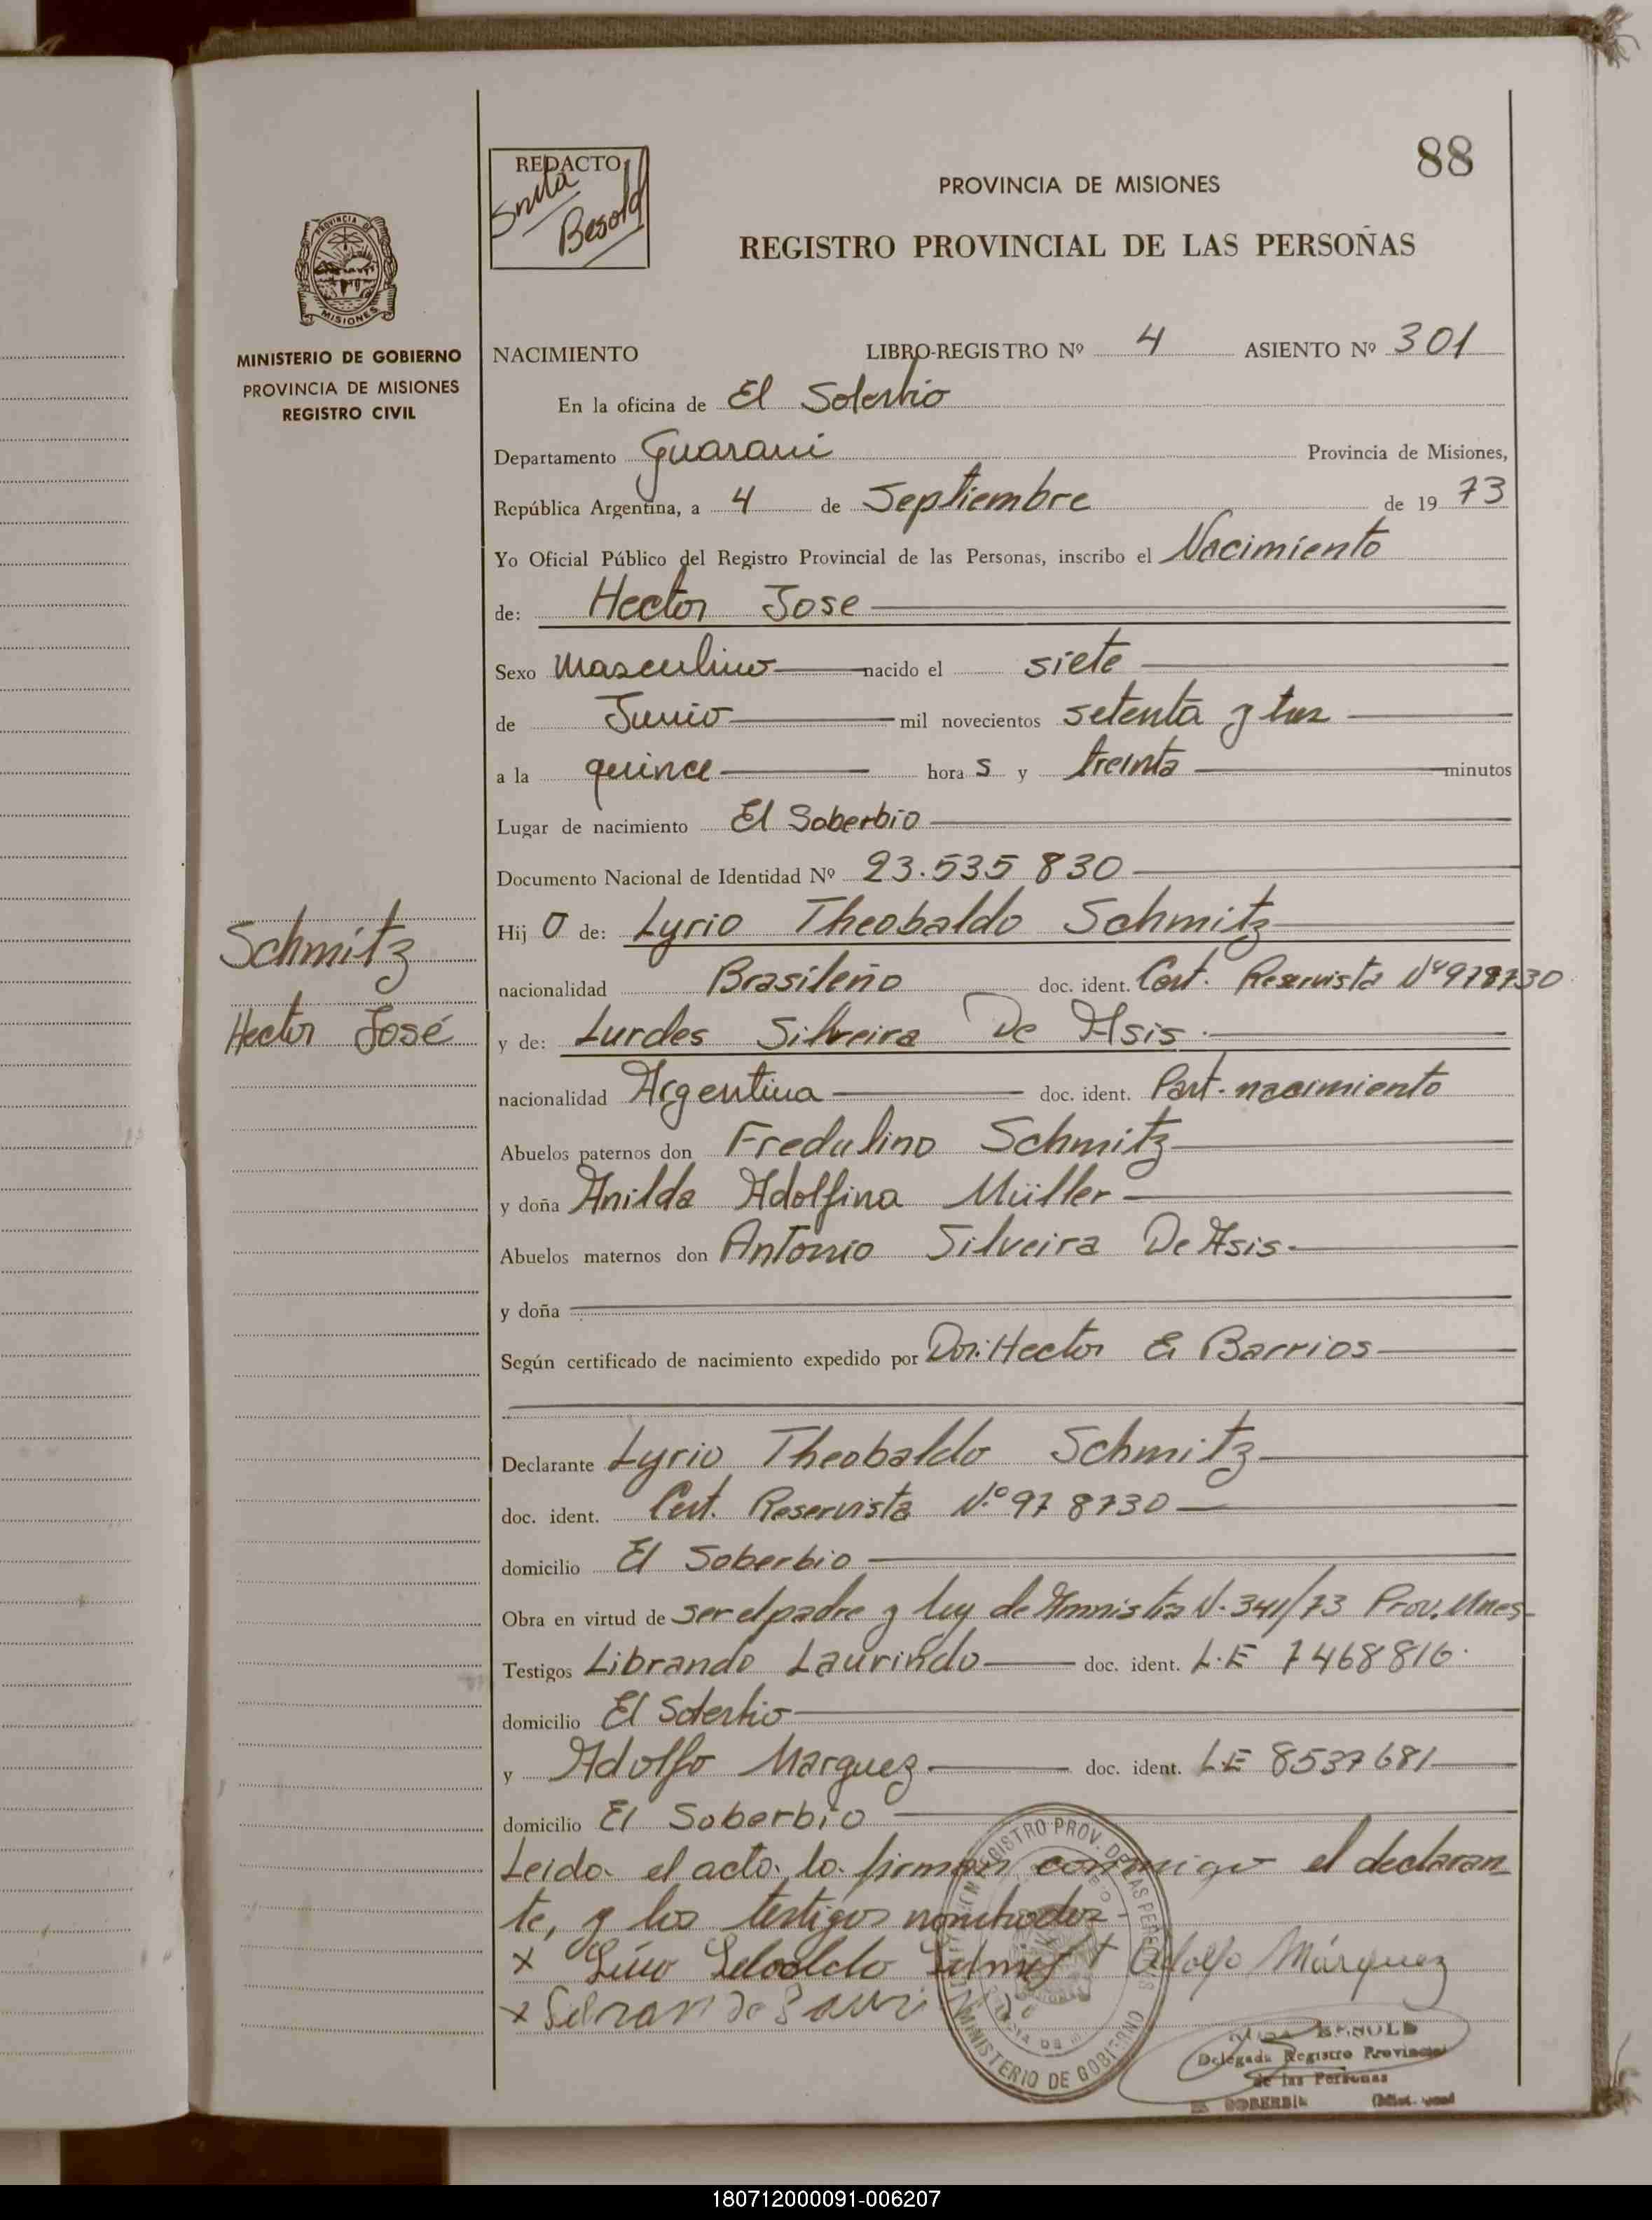 88
REDACTO
Besold
PROVINCIA DE MISIONES
REGISTRO PROVINCIAL DE LAS PERSONAS
PROVINCIA DE
MISIONES
MINISTERIO DE GOBIERNO
PROVINCIA DE MISIONES
REGISTRO CIVIL
NACIMIENTO LIBRO-REGISTRO Nº 4 ASIENTO Nº 301
En la oficina de El Soberbio
Departamento Guarani Provincia de Misiones,
República Argentina, a 4 de Septiembre de 19 73
Yo Oficial Público del Registro Provincial de las Personas, inscribo el Nacimiento
de: Hector Jose
Sexo Masculino nacido el siete
de Junio mil novecientos setenta y tres
a la quince hora s y treinta minutos
Lugar de nacimiento El Soberbio
Documento Nacional de Identidad Nº 23.535 830
Hij o de: Lyrio Theobaldo Schmitz
Schmitz
nacionalidad Brasileño doc. ident. Cert. Reservista Nº 978730
Hector José
y de: Lurdes Silveira De Asis
nacionalidad Argentina doc. ident. Part. nacimiento
Abuelos paternos don Fredulino Schmitz
y doña Anilda Adolfina Müller
Abuelos maternos don Antonio Silveira De Asis
y doña
Según certificado de nacimiento expedido por Dr. Hector E. Barrios
Declarante Lyrio Theobaldo Schmitz
doc. ident. Cert. Reservista Nº 978730
domicilio El Soberbio
Obra en virtud de ser el padre y ley de Amnistia N. 341/73 Prov. Mnes
Testigos Librando Laurindo doc. ident. L.E 7468816.
domicilio El Soberbio
y Adolfo Marquez doc. ident. L.E 8537681
domicilio El Soberbio
Leido el acto, lo firman conmigo el declaran
te, y los testigos nombrados
x Adolfo Márquez
x
REGISTRO PROV. DE LAS PERSONAS
MINISTERIO DE GOBIERNO
BESOLD
Delegada Registro Provincial
de las Personas
EL SOBERBIO
180712000091-006207